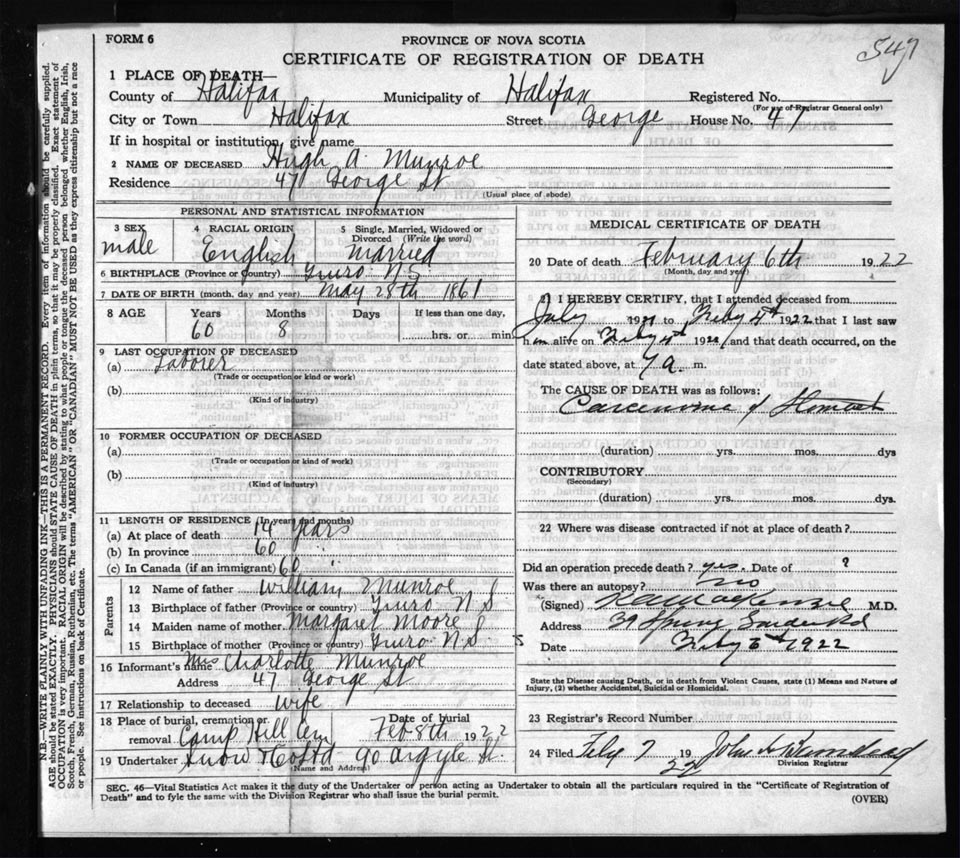 FORM 6
PROVINCE OF NOVA SCOTIA
547
CERTIFICATE OF REGISTRATION OF DEATH
1 PLACE OF DEATH—
County of Halifax Municipality of Halifax Registered No.
(For use of Registrar General only)
City or Town Halifax Street George House No. 47
If in hospital or institution, give name
2 NAME OF DECEASED Hugh A. Munroe
Residence 47 George St
(Usual place of abode)
PERSONAL AND STATISTICAL INFORMATION
3 SEX male
4 RACIAL ORIGIN English
5 Single, Married, Widowed or Divorced (Write the word) Married
6 BIRTHPLACE (Province or Country) Truro N.S
7 DATE OF BIRTH (month, day, and year) May 28th 1861
8 AGE Years Months Days If less than one day,
60 8 hrs. or min.
9 LAST OCCUPATION OF DECEASED
(a) Laborer
(Trade or occupation or kind or work)
(b)
(Kind of industry)
10 FORMER OCCUPATION OF DECEASED
(a)
(Trade or occupation or kind or work)
(b)
(Kind of industry)
11 LENGTH OF RESIDENCE (In years and months)
(a) At place of death 14 years
(b) In province 60 "
(c) In Canada (if an immigrant) 60 "
Parents
12 Name of father William Munroe
13 Birthplace of father (Province or country) Truro N S
14 Maiden name of mother Margaret Moore
15 Birthplace of mother (Province or country) Truro N.S.
16 Informant's name Mrs Charlotte Munroe
Address 47 George St
17 Relationship to deceased wife
18 Place of burial, cremation or removal Camp Hill Cem Date of burial Feb 8th 1922
19 Undertaker Snow & Co Ltd 90 Argyle St
(Name and Address)
MEDICAL CERTIFICATE OF DEATH
20 Date of death February 6th 1922
(Month, day and year)
I HEREBY CERTIFY, that I attended deceased from
July 1921 to Feby 4th 1922 that I last saw
him alive on Feby 4th 1922, and that death occurred, on the
date stated above, at 7 a. m.
The CAUSE OF DEATH was as follows:
Carcenoma of Stomach
(duration) yrs. mos. dys
CONTRIBUTORY
(Secondary)
(duration) yrs. mos. dys.
22 Where was disease contracted if not at place of death?
Did an operation precede death? yes. Date of ?
Was there an autopsy? no
(Signed) MacKenzie M.D.
Address 39 Spring Garden Rd
Date Feby 6th 1922
State the Disease causing Death, or in death from Violent Causes, state (1) Means and Nature of
Injury, (2) whether Accidental, Suicidal or Homicidal.
23 Registrar's Record Number
24 Filed Feby 7 1922 John
Division Registrar
SEC. 46—Vital Statistics Act makes it the duty of the Undertaker or person acting as Undertaker to obtain all the particulars required in the "Certificate of Registration of
Death" and to fyle the same with the Division Registrar who shall issue the burial permit.
(OVER)
N.B.—WRITE PLAINLY WITH UNFADING INK—THIS IS A PERMANENT RECORD. Every item of information should be carefully supplied.
AGE should be stated EXACTLY. PHYSICIANS should STATE CAUSE OF DEATH in plain terms, so that it may be properly classified. Exact statement of
OCCUPATION is very important. RACIAL ORIGIN will be described by stating to what people or tongue the deceased person belonged whether English, Irish,
Scotch, French, German, Russian, Ruthenian, etc. The terms "AMERICAN" OR "CANADIAN" MUST NOT BE USED as they express citizenship but not a race
or people. See instructions on back of Certificate.